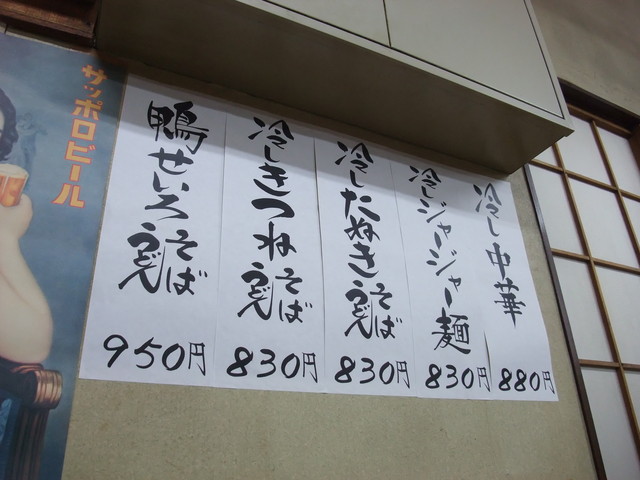 冷し中華
880円
冷しジャージャー麺
830円
冷したぬきそばうどん
830円
冷しきつねそばうどん
830円
鴨せいろそばうどん
950円
サッポロビール